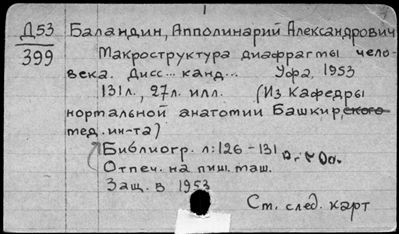 Д53 Баландин, Апполинарий Александрович
399
Макроструктура диафрагмы чело-
века. Дисс... канд... Уфа, 1953
131л., 27л. илл. (Из Кафедры
нормальной анатомии Башкир,ского
мед. ин-та)
Библиогр. л: 126-131
Отпеч. на пиш. маш.
Защ. в 1953
См. след. карт